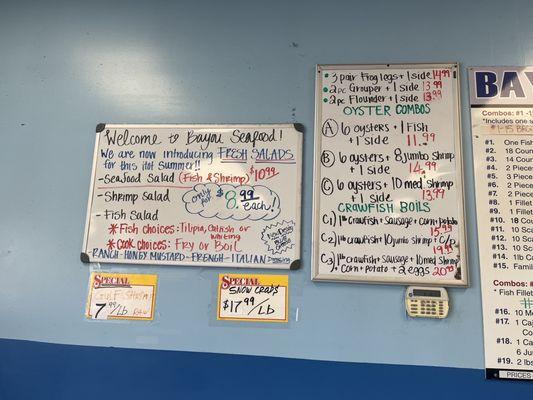 Welcome to Bayou Seafood!
We are now introducing FRESH SALADS
for this Hot Summer!!
- Seafood Salad (Fish & Shrimp) $10.99
- Shrimp Salad
- Fish Salad
only for $8.99 each!
* Fish choices: Tilipia, Catfish or
Whiting
* Cook choices: Fry or Boil
RANCH-HONEY MUSTARD-FRENCH-ITALIAN
SPECIAL
GULF SHRIMP
7.99/Lb RAW
SPECIAL
SNOW CRABS
$17.99/Lb
3 pair Frog legs + 1 side 14.99
2pc Grouper + 1 side 13.99
2pc Flounder + 1 side 13.99
OYSTER COMBOS
A) 6 oysters + 1 Fish
+ 1 side 11.99
B) 6 oysters + 8 jumbo shrimp
+ 1 side 14.99
C) 6 oysters + 10 med shrimp
+ 1 side 13.99
CRAWFISH BOILS
C1) 1lb crawfish + sausage + corn + potato
15.99
C2) 1lb crawfish + 10 jumbo shrimp + C/P
19.99
C3) 1lb crawfish + sausage + 10 med shrimp
corn + potato + 2 eggs 20.99
BAY
Combos #1-
*Includes one s
#1-15
#1. One Fish
#2. 18 Coun
#3. 14 Coun
#4. 2 Piece
#5. 3 Piece
#6. 2 Piece
#7. 2 Piece
#8. 1 Fillet
#9. 1 Fillet
#10. 1 Fillet
#11. 12 Sca
#12. 10 Sca
#13. 10 Sca
#14. 1lb Cat
#15. Family
Combos #1
* Fish Fillet
#16. 10 Me
#17. 1 Cat
Co
#18. 1 Cat
6 Ju
#19. 2 lbs
PRICES